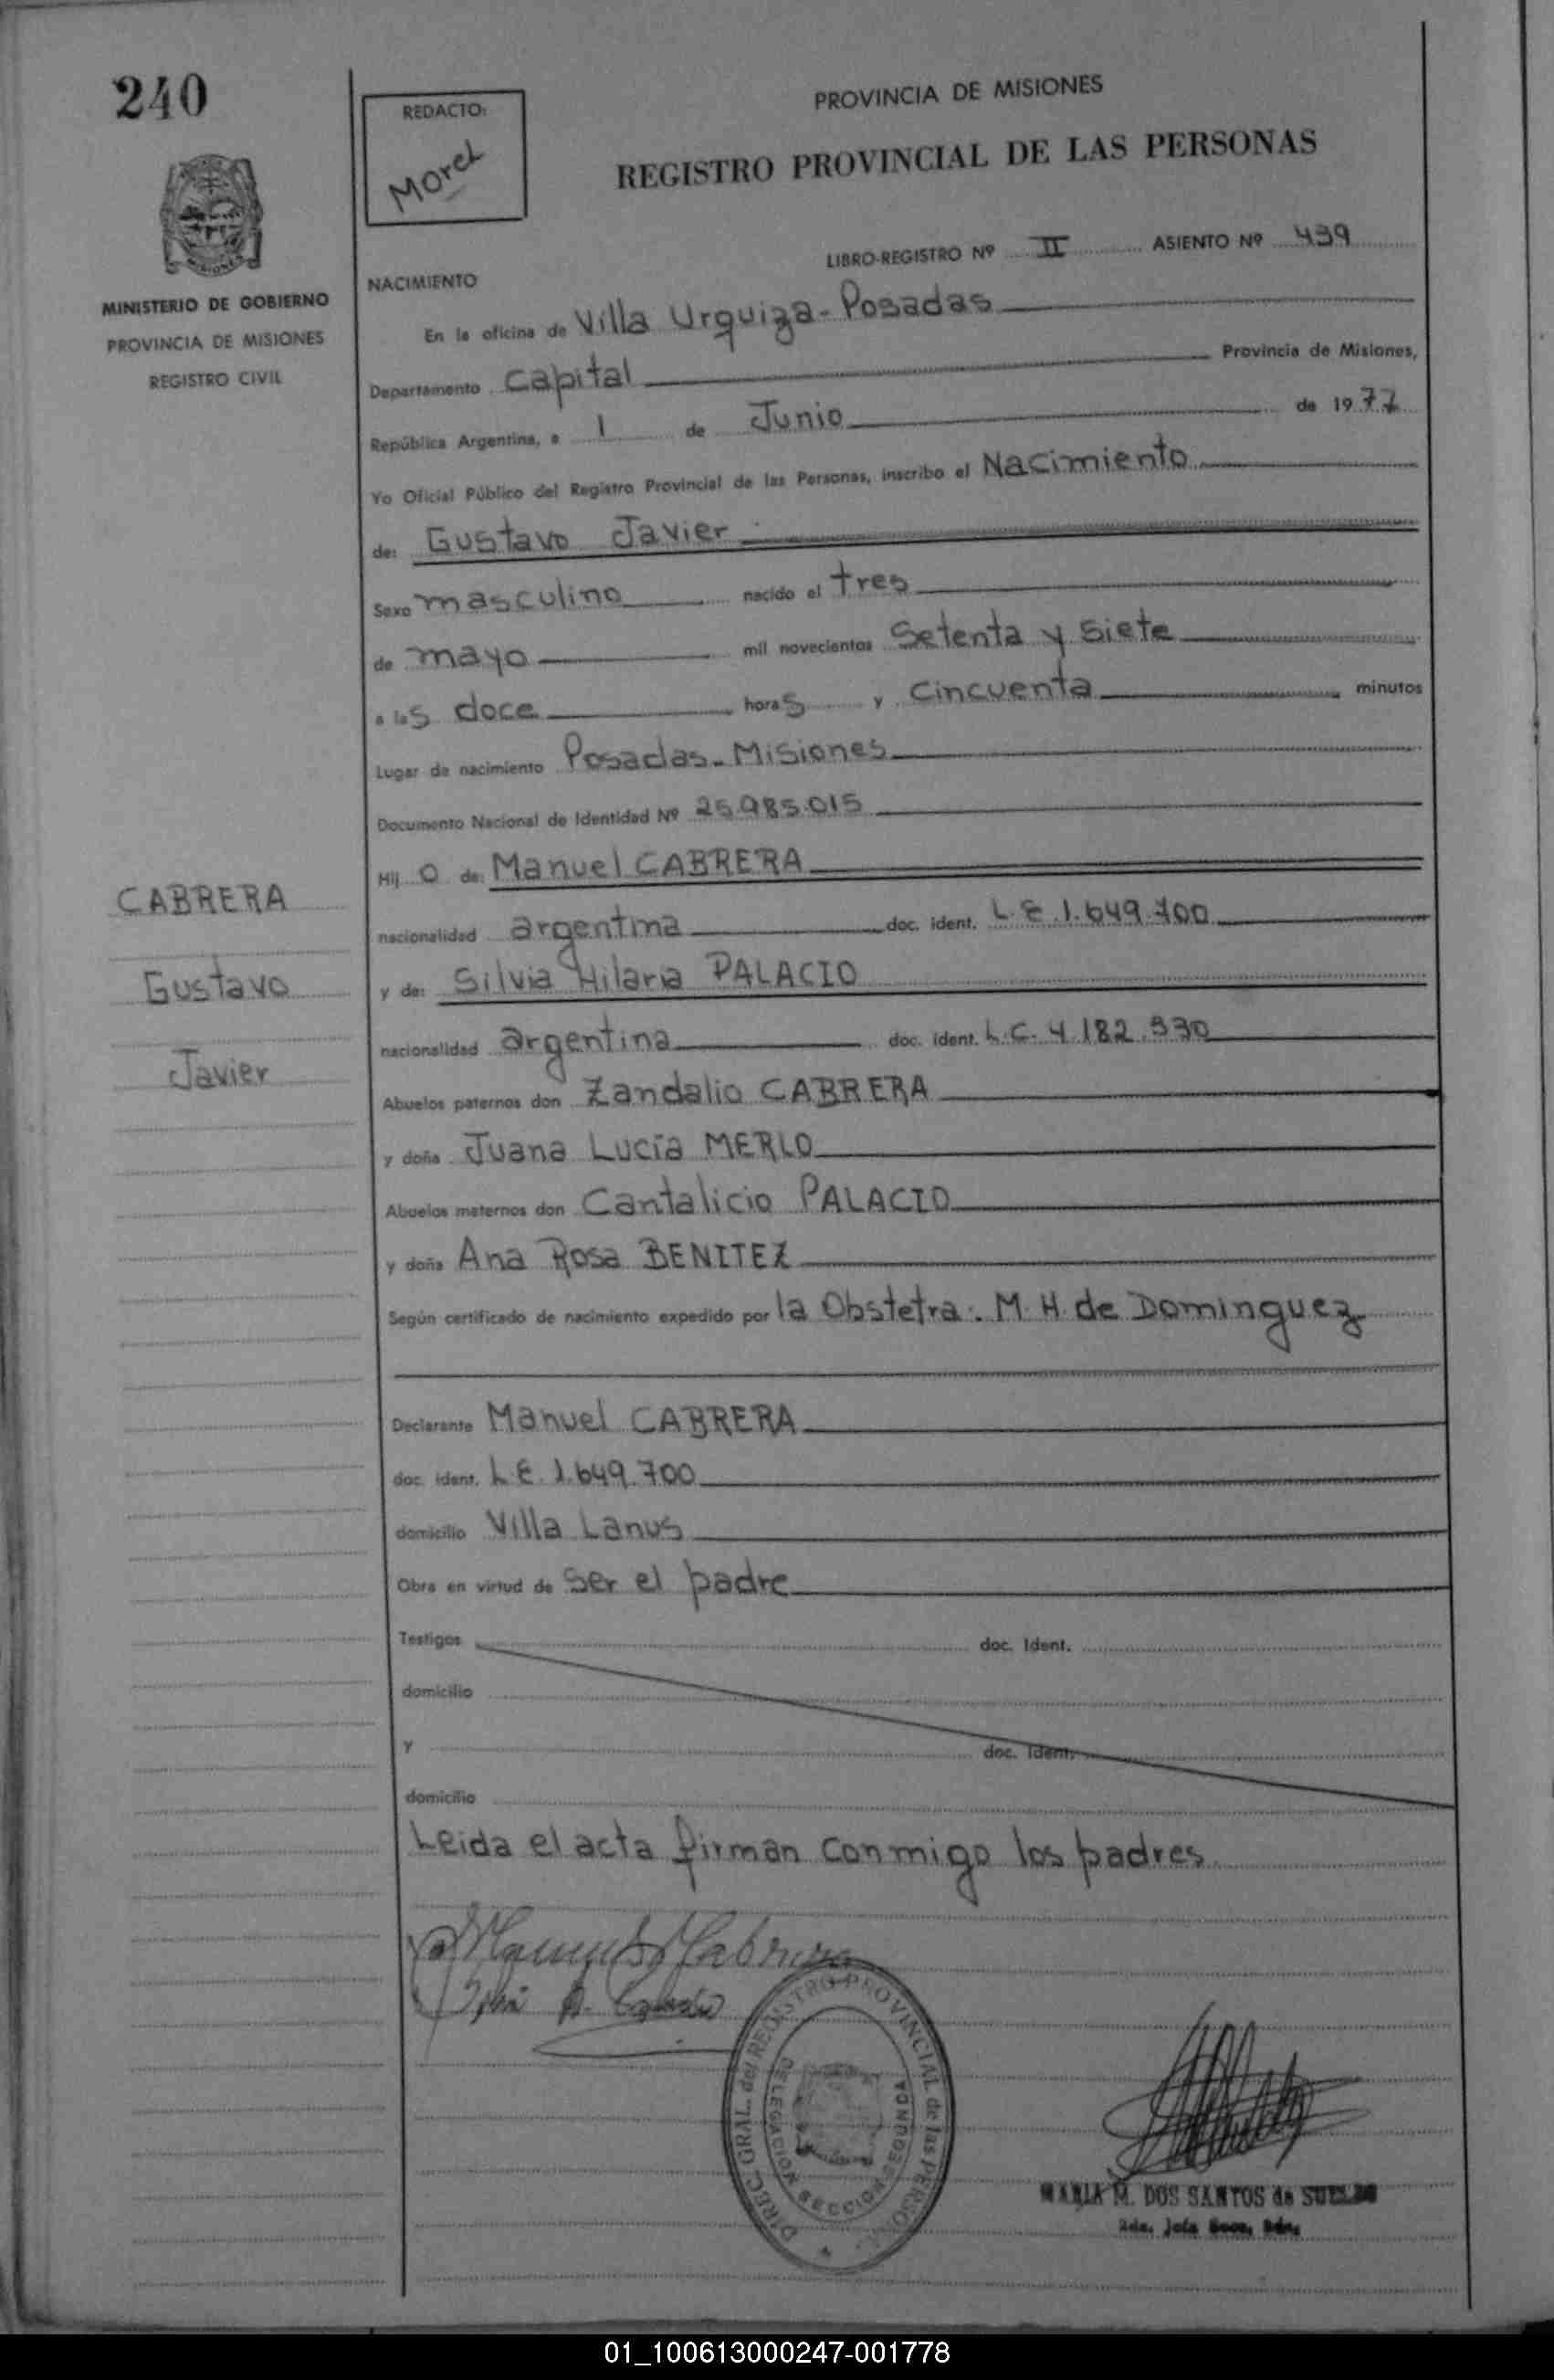 240
REDACTO:
Morel
PROVINCIA DE MISIONES
REGISTRO PROVINCIAL DE LAS PERSONAS
MISIONES
MINISTERIO DE GOBIERNO
PROVINCIA DE MISIONES
REGISTRO CIVIL
LIBRO-REGISTRO Nº II ASIENTO Nº 439
NACIMIENTO
En la oficina de Villa Urquiza - Posadas
Departamento Capital Provincia de Misiones,
República Argentina, a 1 de Junio de 1977
Yo Oficial Público del Registro Provincial de las Personas, inscribo el Nacimiento
de: Gustavo Javier
Sexo masculino nacido el tres
de mayo mil novecientos Setenta y Siete
a las doce horas y Cincuenta minutos
Lugar de nacimiento Posadas - Misiones
Documento Nacional de Identidad Nº 25.985.015
Hijo de: Manuel CABRERA
CABRERA
nacionalidad argentina doc. ident. L.E. 1.649.700
Gustavo
y de: Silvia Hilaria PALACIO
nacionalidad argentina doc. ident. L.C. 4.182.930
Javier
Abuelos paternos don Zandalio CABRERA
y doña Juana Lucía MERLO
Abuelos maternos don Cantalicio PALACIO
y doña Ana Rosa BENITEZ
Según certificado de nacimiento expedido por la Obstetra: M.H. de Dominguez
Declarante Manuel CABRERA
doc. ident. L.E. 1.649.700
domicilio Villa Lanus
Obra en virtud de Ser el padre
Testigos doc. Ident.
domicilio
y doc. Ident.
domicilio
Leida el acta firman conmigo los padres
DIREC. GRAL. del REGISTRO PROVINCIAL de las PERSONAS
DELEGACION SECCION SEGUNDA
MARIA M. DOS SANTOS de
01_100613000247-001778